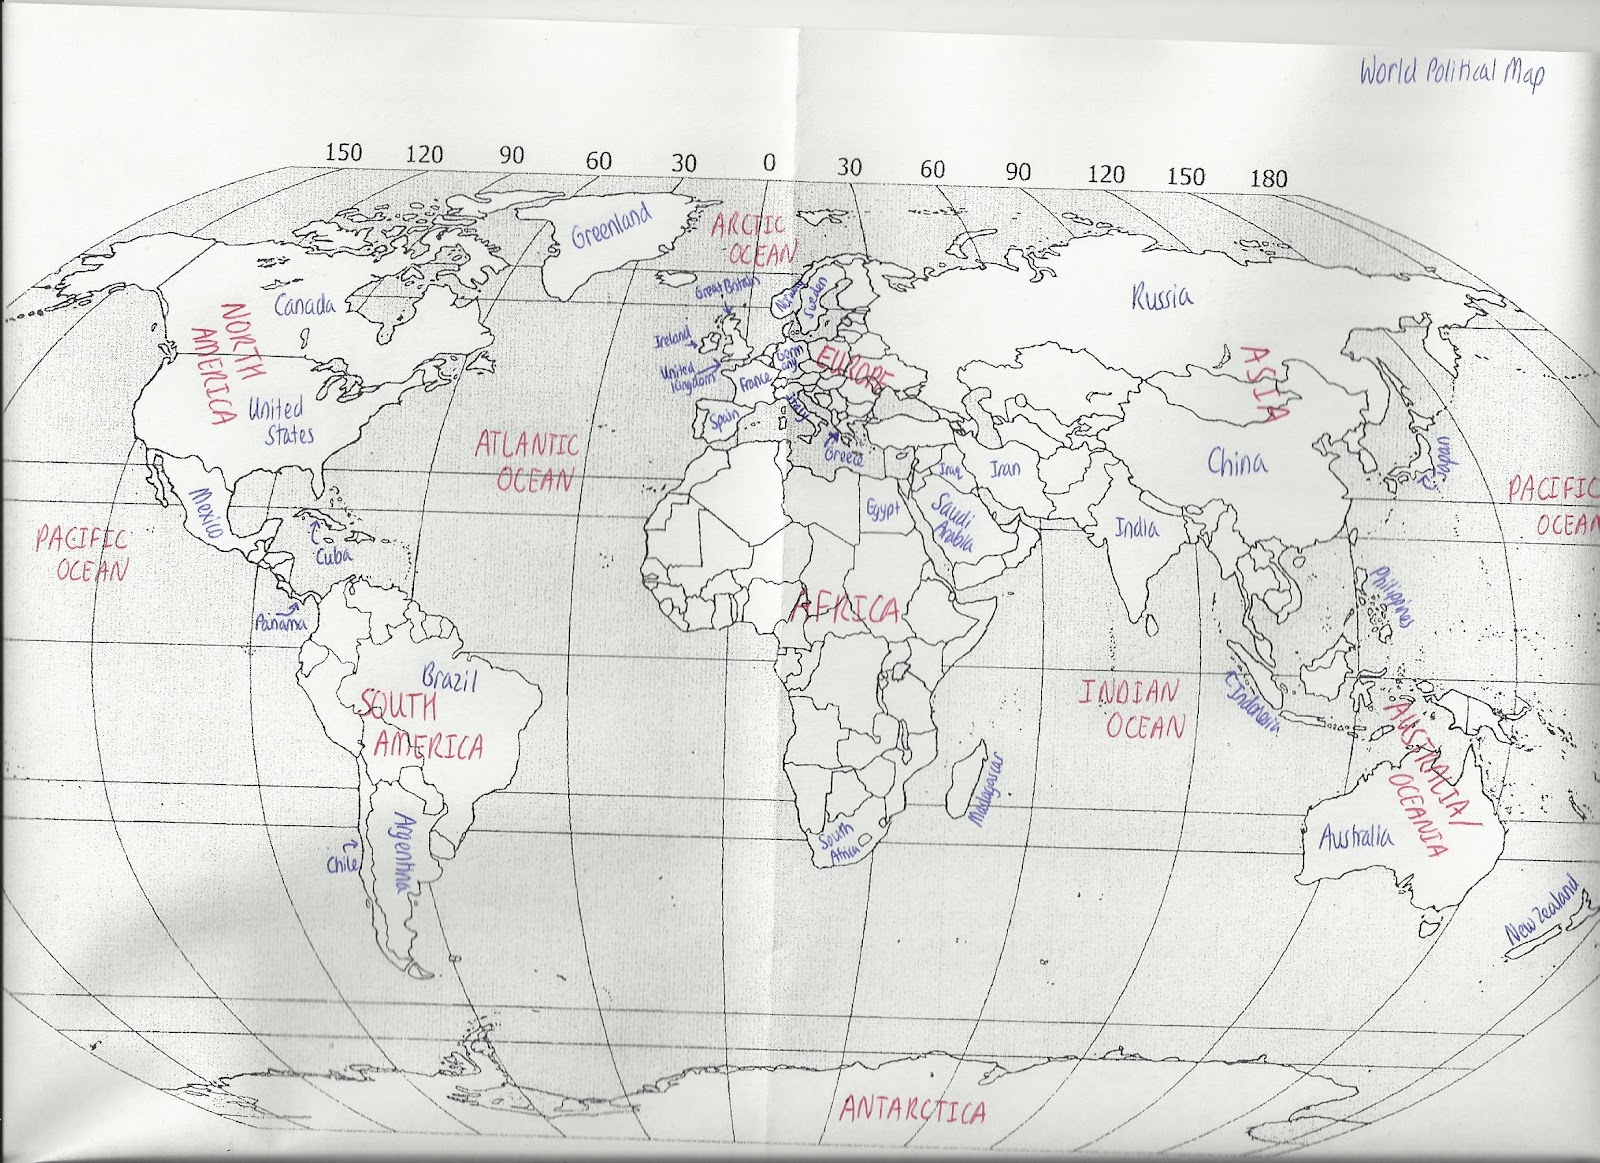 World Political Map
150 120 90 60 30 0 30 60 90 120 150 180
Greenland
ARCTIC
OCEAN
Canada
NORTH
AMERICA
United
States
Mexico
Cuba
Panama
PACIFIC
OCEAN
ATLANTIC
OCEAN
Great Britain
Ireland
United
Kingdom
Norway
Sweden
Germ
any
France
Spain
Italy
Greece
EUROPE
Russia
ASIA
China
Japan
Iraq
Iran
Saudi
Arabia
Egypt
India
Philippines
PACIFIC
OCEAN
AFRICA
Brazil
SOUTH
AMERICA
Argentina
Chile
South
Africa
Madagascar
INDIAN
OCEAN
Indonesia
AUSTRALIA/
OCEANIA
Australia
New Zealand
ANTARCTICA